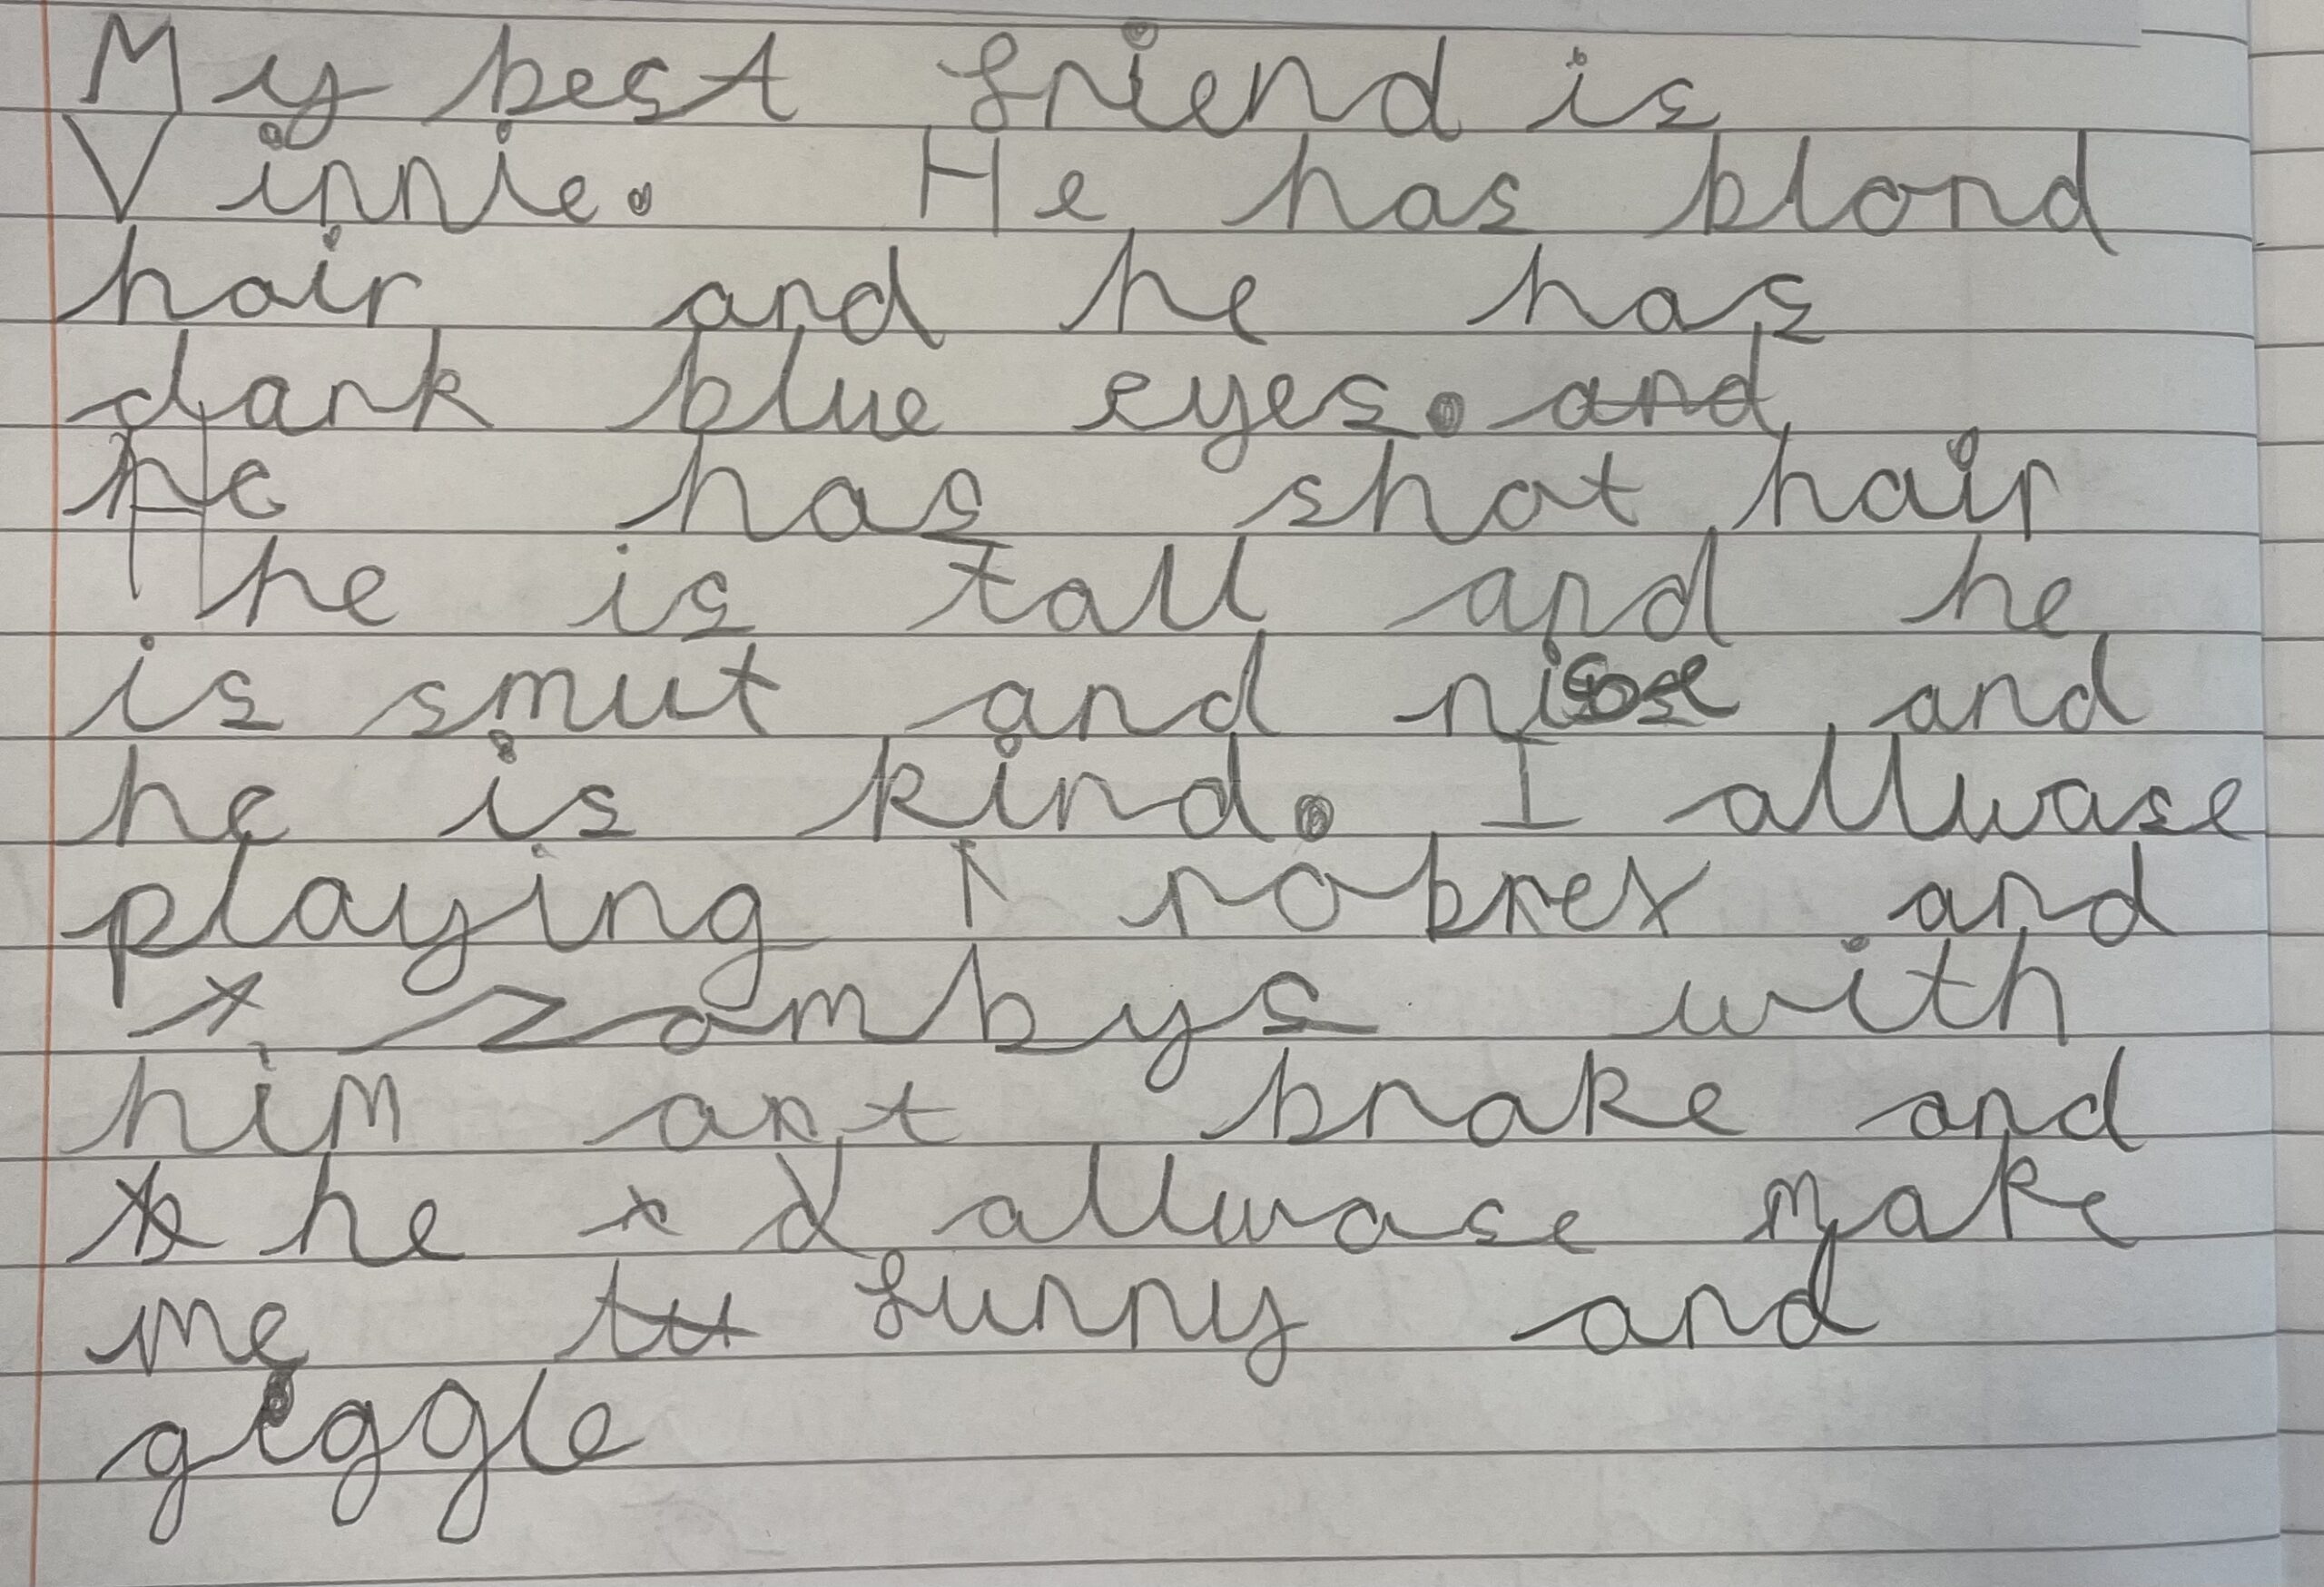 My best friend is
Vinnie. He has blond
hair and he has
dark blue eyes. and
He has shot hair
he is tall and he
is smut and nise and
he is kind. I allwase
playing robrex and
zombys with
him art brake and
he allwase make
me funny and
giggle